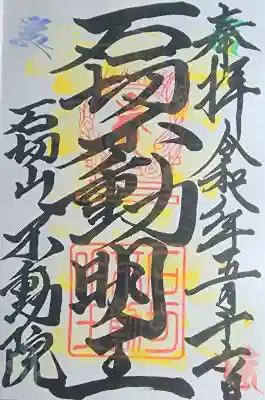 奉拝 令和年五月十日
石切不動明王
石切山不動院